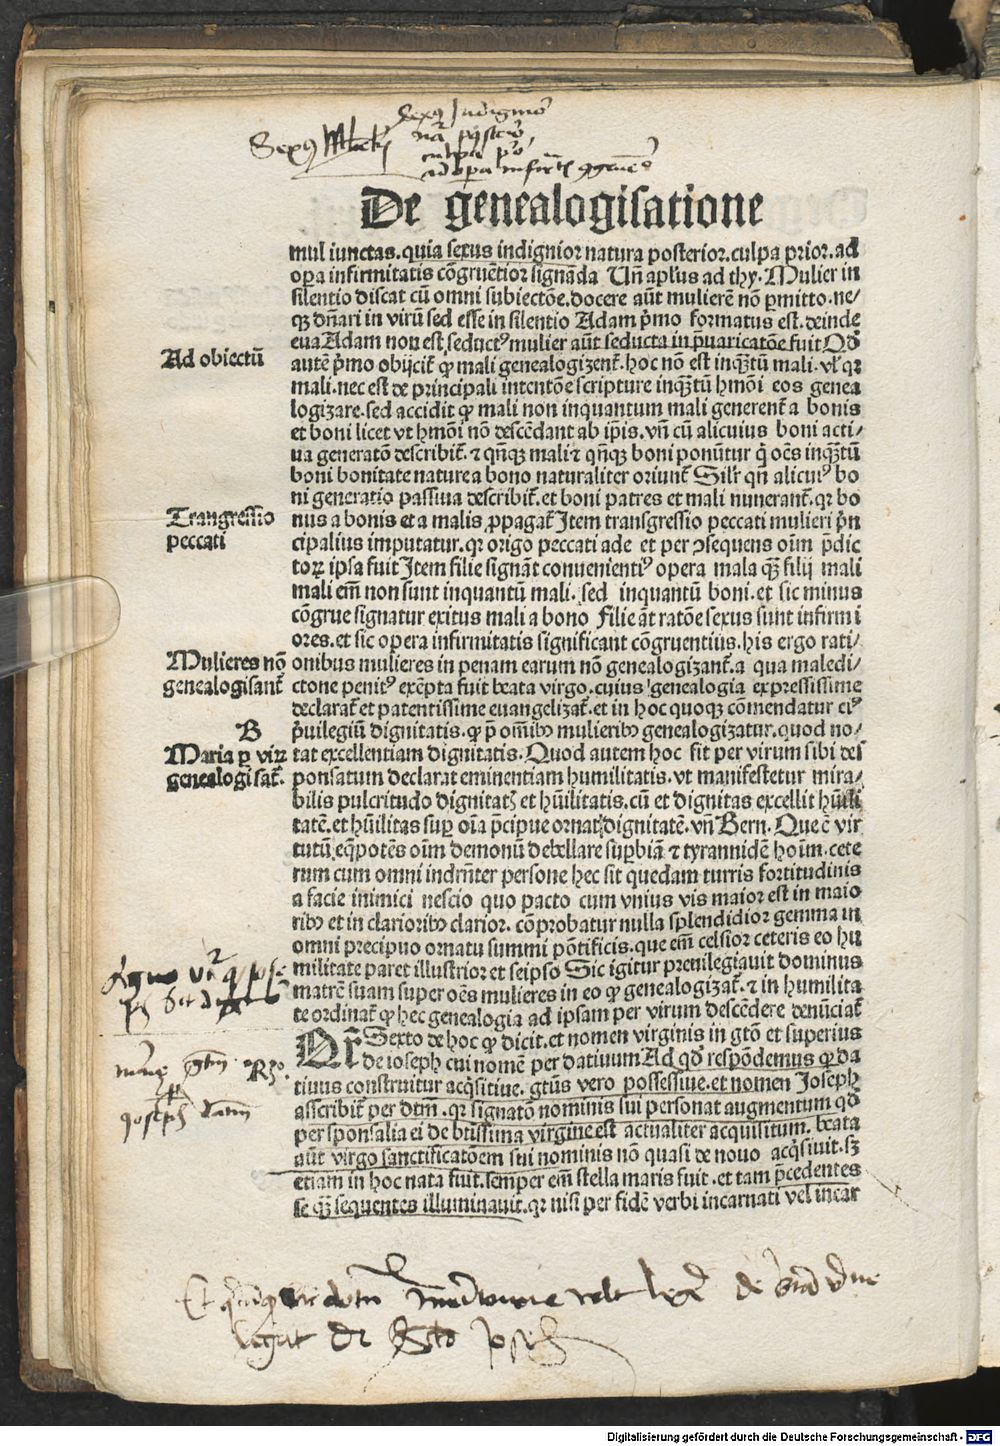 De genealogisatione
mul iunctas. quia sexus indignior natura posterior. culpa prior. ad
opa infirmitatis cōgruentior signāda Uñ aplus ad thy. Mulier in
silentio discat cū omni subiectōe. docere aūt mulierē nō pmitto. ne/
qꝫ dñari in virū sed esse in silentio Adam pͥmo formatus est. deinde
eua Adam non est seductꝰ mulier aūt seducta in p̄uaricatōe fuit Qď
Ad obiectū
autē pͥmo obijcit̄ ꝙ mali genealogizent̄. hoc nō est inqꝫtū mali. vl̓ qꝛ
mali. nec est de principali intentōe scripture inqꝫtū hmōi eos genea
logizare. sed accidit ꝙ mali non inquantum mali generent̄ a bonis
et boni licet vt hmōi nō descēdant ab ip̄is. vñ cū alicuius boni acti/
ua generatō describit̄. ⁊ qñqꝫ mali ⁊ qñqꝫ boni ponūtur qͥ oēs inqꝫtū
boni bonitate nature a bono naturaliter oriunt̄ Silr̓ qñ alicuiꝰ bo
ni generatio passiua describit̄. et boni patres et mali nunerant̄. qꝛ bo
Trangressio
peccati
nus a bonis et a malis ꝓpagat̄ Item transgressio peccati mulieri pͥn
cipalius imputatur. qꝛ origo peccati ade et per ↄsequens oīm p̄dic
toꝝ ipsa fuit Item filie signāt conuenientiꝰ opera mala qꝫ filij mali
mali em̄ non sunt inquantū mali. sed inquantū boni. et sic minus
cōgrue signatur exitus mali a bono Filie āt ratōe sexus sunt infirmi
ores. et sic opera infirmitatis significant cōgruentius. his ergo rati/
Mulieres nō
genealogisant̄
onibus mulieres in penam earum nō genealogizant̄. a qua maledi/
ctone penitꝰ exēpta fuit beata virgo. cuius genealogia expressissime
declarat̄ et patentissime euangelizat̄. et in hoc quoqꝫ cōmendatur eiꝰ
B
Maria ꝑ virꝝ
genealogisat̄.
pͥuilegiū dignitatis. ꝙ p̄ omībꝫ mulieribꝫ genealogizatur. quod no/
tat excellentiam dignitatis. Quod autem hoc sit per virum sibi des̄
ponsatum declarat eminentiam humilitatis. vt manifestetur mira/
bilis pulcritudo dignitatꝭ et hūilitatis. cū et dignitas excellit hūili
tatē. et hūilitas suꝑ oīa p̄cipue ornat dignitatē. vñ Bern. Que ē vir
tutū eqͥpotēs oīm demonū debellare suꝑbiā ⁊ tyrannidē hoīm. cete
rum cum omni indrn̄ter persone hec sit quedam turris fortitudinis
a facie inimici nescio quo pacto cum vnius vis maior est in maio
ribꝫ et in clarioribꝫ clarior. cōprobatur nulla splendidior gemma in
omni precipuo ornatu summi pōtificis. que em̄ celsior ceteris eo hu
militate paret illustrior et seipso Sic igitur preuilegiauit dominus
matrē suam super oēs mulieres in eo ꝙ genealogizat̄. ⁊ in humilita
te ordinat̄ ꝙ hec genealogia ad ipsam per virum descēdere denūciat̄
Sexto de hoc ꝙ dicit. et nomen virginis in gtō et superius
de ioseph cui nomē per datiuum Ad qď respōdemus ꝙ da
tiuus construitur acqͥsitiue. gtūs vero possessiue. et nomen Joseph
asscribit̄ per dtm̄. qꝛ signatō nominis sui personat augmentum qď
per sponsalia ei de btīssima virgine est actualiter acquisitum. beata
aūt virgo sanctificatōem sui nominis nō quasi de nouo acqͥsiuit. sꝫ
etiam in hoc nata fuit. semper em̄ stella maris fuit. et tam p̄cedentes
se qꝫ sequentes illuminauit. qꝛ nisi per fidē verbi incarnati vel incar